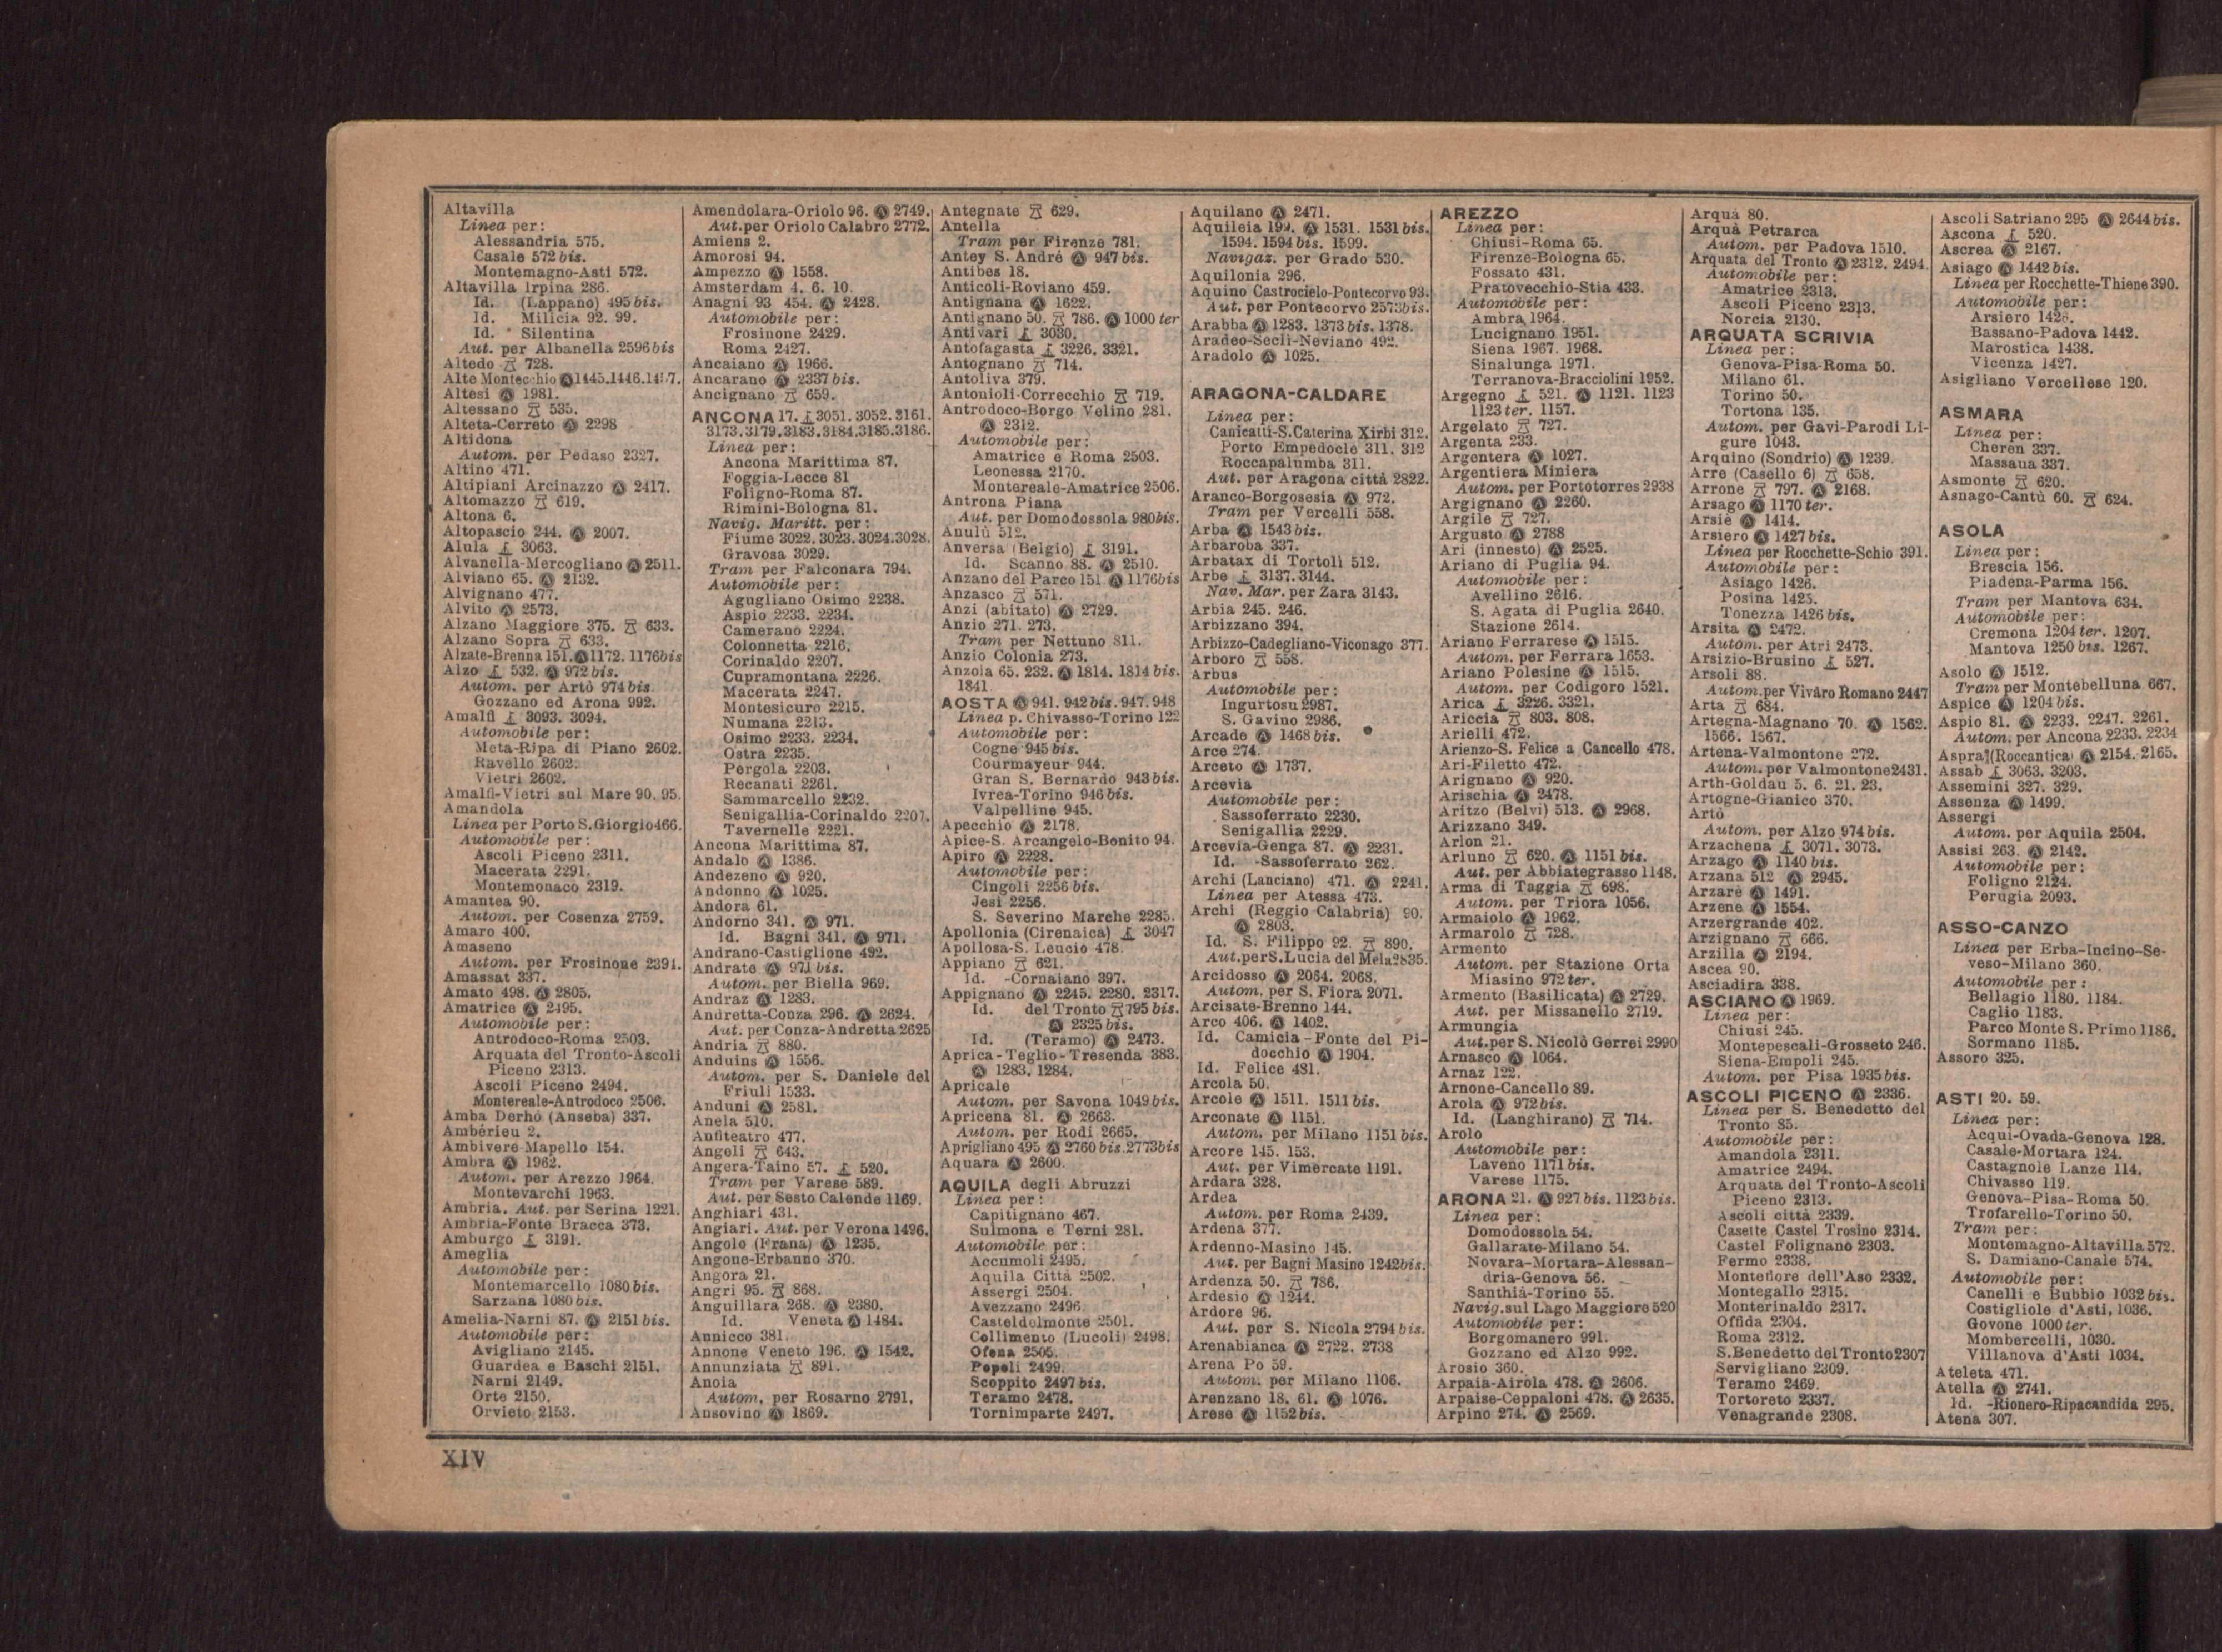 Altavilla
Linea per:
Alessandria 575.
Casale 572 bis.
Montemagno-Asti 572.
Altavilla Irpina 286.
Id. (Lappano) 495 bis.
Id. Milicia 92. 99.
Id. Silentina
Aut. per Albanella 2596 bis
Altedo 728.
Alte Montecchio Ⓐ 1445.1446.
Altesi Ⓐ 1981.
Altessano 535.
Alteta-Cerreto Ⓐ 2298
Altidona
Autom. per Pedaso 2327.
Altino 471.
Altipiani Arcinazzo Ⓐ 2417.
Altomazzo 619.
Altona 6.
Altopascio 244. Ⓐ 2007.
Alula 3063.
Alvanella-Mercogliano Ⓐ 2511.
Alviano 65. Ⓐ 2132.
Alvignano 477.
Alvito Ⓐ 2573.
Alzano Maggiore 375. 633.
Alzano Sopra 633.
Alzate-Brenna 151. Ⓐ 1172. 1176 bis
Alzo 532. Ⓐ 972 bis.
Autom. per Artò 974 bis
Gozzano ed Arona 992.
Amalfi 3093. 3094.
Automobile per:
Meta-Ripa di Piano 2602.
Ravello 2602.
Vietri 2602.
Amalfi-Vietri sul Mare 90. 95.
Amandola
Linea per Porto S. Giorgio 466.
Automobile per:
Ascoli Piceno 2311.
Macerata 2291.
Montemonaco 2319.
Amantea 90.
Autom. per Cosenza 2759.
Amaro 400.
Amaseno
Autom. per Frosinone 2391.
Amassat 337.
Amato 498. Ⓐ 2805.
Amatrice Ⓐ 2495.
Automobile per:
Antrodoco-Roma 2503.
Arquata del Tronto-Ascoli
Piceno 2313.
Ascoli Piceno 2494.
Montereale-Antrodoco 2506.
Amba Derhò (Anseba) 337.
Ambérieu 2.
Ambivere-Mapello 154.
Ambra Ⓐ 1962.
Autom. per Arezzo 1964.
Montevarchi 1963.
Ambria. Aut. per Serina 1221.
Ambria-Fonte Bracca 373.
Amburgo 3191.
Ameglia
Automobile per:
Montemarcello 1080 bis.
Sarzana 1080 bis.
Amelia-Narni 87. Ⓐ 2151 bis.
Automobile per:
Avigliano 2145.
Guardea e Baschi 2151.
Narni 2149.
Orte 2150.
Orvieto 2153.
Amendolara-Oriolo 96. Ⓐ 2749.
Aut. per Oriolo Calabro 2772.
Amiens 2.
Amorosi 94.
Ampezzo Ⓐ 1558.
Amsterdam 4. 6. 10
Anagni 93 454. Ⓐ 2428.
Automobile per:
Frosinone 2429.
Roma 2427.
Ancaiano Ⓐ 1966.
Ancarano Ⓐ 2337 bis.
Ancignano 659.
ANCONA 17. 3051. 3052. 3161.
3173.3179.3183.3184.3185.3186.
Linea per:
Ancona Marittima 87.
Foggia-Lecce 81
Foligno-Roma 87.
Rimini-Bologna 81.
Navig. Maritt. per:
Fiume 3022. 3023. 3024.3028.
Gravosa 3029.
Tram per Falconara 794.
Automobile per:
Agugliano Osimo 2238.
Aspio 2233. 2234.
Camerano 2224.
Colonnetta 2216.
Corinaldo 2207.
Cupramontana 2226.
Macerata 2247.
Montesicuro 2215.
Numana 2213.
Osimo 2233. 2234.
Ostra 2235.
Pergola 2203.
Recanati 2261.
Sammarcello 2232.
Senigallia-Corinaldo 2207.
Tavernelle 2221.
Ancona Marittima 87.
Andalo Ⓐ 1386.
Andezeno Ⓐ 920.
Andonno Ⓐ 1025.
Andora 61.
Andorno 341. Ⓐ 971.
Id. Bagni 341. Ⓐ 971.
Andrano-Castiglione 492.
Andrate Ⓐ 971 bis.
Autom. per Biella 969.
Andraz Ⓐ 1283.
Andretta-Conza 296. Ⓐ 2624.
Aut. per Conza-Andretta 2625
Andria 880.
Anduins Ⓐ 1556.
Autom. per S. Daniele del
Friuli 1533.
Anduni Ⓐ 2581.
Anela 510.
Anfiteatro 477.
Angeli 643.
Angera-Taino 57. 520.
Tram per Varese 589.
Aut. per Sesto Calende 1169.
Anghiari 431.
Angiari. Aut. per Verona 1496.
Angolo (Frana) Ⓐ 1235.
Angone-Erbanno 370.
Angora 21.
Angri 95. 868.
Anguillara 268. Ⓐ 2380.
Id. Veneta Ⓐ 1484.
Annicco 381.
Annone Veneto 196. Ⓐ 1542.
Annunziata 891.
Anoia
Autom. per Rosarno 2791,
Ansovino Ⓐ 1869.
Antegnate 629.
Antella
Tram per Firenze 781.
Antey S. André Ⓐ 947 bis.
Antibes 18.
Anticoli-Roviano 459.
Antignana Ⓐ 1622.
Antignano 50. 786. Ⓐ 1000 ter
Antivari 3030.
Antofagasta 3226. 3321.
Antognano 714.
Antoliva 379.
Antonioli-Correcchio 719.
Antrodoco-Borgo Velino 281.
Ⓐ 2312.
Automobile per:
Amatrice e Roma 2503.
Leonessa 2170.
Montereale-Amatrice 2506.
Antrona Piana
Aut. per Domodossola 980 bis.
Anulù 512.
Anversa (Belgio) 3191.
Id. Scanno 88. Ⓐ 2510.
Anzano del Parco 151 Ⓐ 1176 bis
Anzasco 571.
Anzi (abitato) Ⓐ 2729.
Anzio 271. 273.
Tram per Nettuno 811.
Anzio Colonia 273.
Anzola 65. 232. Ⓐ 1814. 1814 bis.
1841
AOSTA Ⓐ 941. 942 bis. 947. 948
Linea p. Chivasso-Torino 122
Automobile per:
Cogne 945 bis.
Courmayeur 944.
Gran S. Bernardo 943 bis.
Ivrea-Torino 946 bis.
Valpelline 945.
Apecchio Ⓐ 2178.
Apice-S. Arcangelo-Bonito 94.
Apiro Ⓐ 2228.
Automobile per:
Cingoli 2256 bis.
Jesi 2256.
S. Severino Marche 2285.
Apollonia (Cirenaica) 3047
Apollosa-S. Leucio 478
Appiano 621.
Id. -Cornaiano 397.
Appignano Ⓐ 2245. 2280. 2317.
Id. del Tronto 795 bis.
Ⓐ 2325 bis.
Id. (Teramo) Ⓐ 2473.
Aprica-Teglio-Tresenda 383.
Ⓐ 1283. 1284.
Apricale
Autom. per Savona 1049 bis.
Apricena 81. Ⓐ 2663.
Autom. per Rodi 2665.
Aprigliano 495 Ⓐ 2760 bis. 2773 bis
Aquara Ⓐ 2600.
AQUILA degli Abruzzi
Linea per:
Capitignano 467.
Sulmona e Terni 281.
Automobile per:
Accumoli 2495.
Aquila Città 2502.
Assergi 2504.
Avezzano 2496.
Casteldelmonte 2501.
Collimento (Lucoli) 2498.
Ofena 2505.
Popoli 2499.
Scoppito 2497 bis.
Teramo 2478.
Tornimparte 2497.
Aquilano Ⓐ 2471.
Aquileia 199. Ⓐ 1531. 1531 bis.
1594. 1594 bis. 1599.
Navigaz. per Grado 530.
Aquilonia 296.
Aquino Castrocielo-Pontecorvo 93.
Aut. per Pontecorvo 2573 bis.
Arabba Ⓐ 1283. 1373 bis. 1378.
Aradeo-Seclì-Neviano 492.
Aradolo Ⓐ 1025.
ARAGONA-CALDARE
Linea per:
Canicattì-S. Caterina Xirbi 312.
Porto Empedocle 311. 312
Roccapalumba 311.
Aut. per Aragona città 2822.
Aranco-Borgosesia Ⓐ 972.
Tram per Vercelli 558.
Arba Ⓐ 1543 bis.
Arbaroba 337.
Arbatax di Tortolì 512.
Arbe 3137. 3144.
Nav. Mar. per Zara 3143.
Arbia 245. 246.
Arbizzano 394.
Arbizzo-Cadegliano-Viconago 377.
Arboro 558.
Arbus
Automobile per:
Ingurtosu 2987.
S. Gavino 2986.
Arcade Ⓐ 1468 bis.
Arce 274.
Arceto Ⓐ 1737.
Arcevia
Automobile per:
Sassoferrato 2230.
Senigallia 2229.
Arcevia-Genga 87. Ⓐ 2231.
Id. -Sassoferrato 262.
Archi (Lanciano) 471. Ⓐ 2241.
Linea per Atessa 473.
Archi (Reggio Calabria) 90.
Ⓐ 2803.
Id. S. Filippo 92. 890.
Aut. per S. Lucia del Mela 2835.
Arcidosso Ⓐ 2064. 2068.
Autom. per S. Fiora 2071.
Arcisate-Brenno 144.
Arco 406. Ⓐ 1402.
Id. Camicia-Fonte del Pi-
docchio Ⓐ 1904.
Id. Felice 481.
Arcola 50.
Arcole Ⓐ 1511. 1511 bis.
Arconate Ⓐ 1151.
Autom. per Milano 1151 bis.
Arcore 145. 153.
Aut. per Vimercate 1191.
Ardara 328.
Ardea
Autom. per Roma 2439.
Ardena 377.
Ardenno-Masino 145.
Aut. per Bagni Masino 1242 bis.
Ardenza 50. 786.
Ardesio Ⓐ 1244.
Ardore 96.
Aut. per S. Nicola 2794 bis.
Arenabianca Ⓐ 2722. 2738
Arena Po 59.
Autom. per Milano 1106.
Arenzano 18. 61. Ⓐ 1076.
Arese Ⓐ 1152 bis.
AREZZO
Linea per:
Chiusi-Roma 65.
Firenze-Bologna 65.
Fossato 431.
Pratovecchio-Stia 433.
Automobile per:
Ambra 1964.
Lucignano 1951.
Siena 1967. 1968.
Sinalunga 1971.
Terranova-Bracciolini 1952.
Argegno 521. Ⓐ 1121. 1123
1123 ter. 1157.
Argelato 727.
Argenta 233.
Argentera Ⓐ 1027.
Argentiera Miniera
Autom. per Portotorres 2938
Argignano Ⓐ 2260.
Argile 727.
Argusto Ⓐ 2788
Ari (innesto) Ⓐ 2525.
Ariano di Puglia 94.
Automobile per:
Avellino 2616.
S. Agata di Puglia 2640.
Stazione 2614.
Ariano Ferrarese Ⓐ 1515.
Autom. per Ferrara 1653.
Ariano Polesine Ⓐ 1515.
Autom. per Codigoro 1521.
Arica 3226. 3321.
Ariccia 803. 808.
Arielli 472.
Arienzo-S. Felice a Cancello 478.
Ari-Filetto 472.
Arignano Ⓐ 920.
Arischia Ⓐ 2478.
Aritzo (Belvì) 513. Ⓐ 2968.
Arizzano 349.
Arlon 21.
Arluno 620. Ⓐ 1151 bis.
Aut. per Abbiategrasso 1148.
Arma di Taggia 698.
Autom. per Triora 1056.
Armaiolo Ⓐ 1962.
Armarolo 728.
Armento
Autom. per Stazione Orta
Miasino 972 ter.
Armento (Basilicata) Ⓐ 2729.
Aut. per Missanello 2719.
Armungia
Aut. per S. Nicolò Gerrei 2990
Arnasco Ⓐ 1064.
Arnaz 122.
Arnone-Cancello 89.
Arola Ⓐ 972 bis.
Id. (Langhirano) 714.
Arolo
Automobile per:
Laveno 1171 bis.
Varese 1175.
ARONA 21. Ⓐ 927 bis. 1123 bis.
Linea per:
Domodossola 54.
Gallarate-Milano 54.
Novara-Mortara-Alessan-
dria-Genova 56.
Santhià-Torino 55.
Navig. sul Lago Maggiore 520
Automobile per:
Borgomanero 991.
Gozzano ed Alzo 992.
Arosio 360.
Arpaia-Airola 478. Ⓐ 2606.
Arpaise-Ceppaloni 478. Ⓐ 2635.
Arpino 274. Ⓐ 2569.
Arquà 80.
Arquà Petrarca
Autom. per Padova 1510.
Arquata del Tronto Ⓐ 2312. 2494
Automobile per:
Amatrice 2313.
Ascoli Piceno 2313.
Norcia 2130.
ARQUATA SCRIVIA
Linea per:
Genova-Pisa-Roma 50.
Milano 61.
Torino 50.
Tortona 135.
Autom. per Gavi-Parodi Li-
gure 1043.
Arquino (Sondrio) Ⓐ 1239.
Arre (Casello 6) 658.
Arrone 797. Ⓐ 2168.
Arsago Ⓐ 1170 ter.
Arsiè Ⓐ 1414.
Arsiero Ⓐ 1427 bis.
Linea per Rocchette-Schio 391.
Automobile per:
Asiago 1426.
Posina 1425.
Tonezza 1426 bis.
Arsita Ⓐ 2472.
Autom. per Atri 2473.
Arsizio-Brusino 527.
Arsoli 88.
Autom. per Vivaro Romano 2447
Arta 684.
Artegna-Magnano 70. Ⓐ 1562.
1566. 1567.
Artena-Valmontone 272.
Autom. per Valmontone 2431.
Arth-Goldau 5. 6. 21. 23.
Artogne-Gianico 370.
Artò
Autom. per Alzo 974 bis.
Arzachena 3071. 3073.
Arzago Ⓐ 1140 bis.
Arzana 512 Ⓐ 2945.
Arzarè Ⓐ 1491.
Arzene Ⓐ 1554.
Arzergrande 402.
Arzignano 666.
Arzilla Ⓐ 2194.
Ascea 90.
Asciadira 338.
ASCIANO Ⓐ 1969.
Linea per:
Chiusi 245.
Montepescali-Grosseto 246.
Siena-Empoli 245.
Autom. per Pisa 1935 bis.
ASCOLI PICENO Ⓐ 2336.
Linea per S. Benedetto del
Tronto 85.
Automobile per:
Amandola 2311.
Amatrice 2494.
Arquata del Tronto-Ascoli
Piceno 2313.
Ascoli città 2339.
Casette Castel Trosino 2314.
Castel Folignano 2303.
Fermo 2338.
Montefiore dell'Aso 2332.
Montegallo 2315.
Monterinaldo 2317.
Offida 2304.
Roma 2312.
S. Benedetto del Tronto 2307
Servigliano 2309.
Teramo 2469.
Tortoreto 2337.
Venagrande 2308.
Ascoli Satriano 295 Ⓐ 2644 bis.
Ascona 520.
Ascrea Ⓐ 2167.
Asiago Ⓐ 1442 bis.
Linea per Rocchette-Thiene 390.
Automobile per:
Arsiero 1426.
Bassano-Padova 1442.
Marostica 1438.
Vicenza 1427.
Asigliano Vercellese 120.
ASMARA
Linea per:
Cheren 337.
Massaua 337.
Asmonte 620.
Asnago-Cantù 60. 624.
ASOLA
Linea per:
Brescia 156.
Piadena-Parma 156.
Tram per Mantova 634.
Automobile per:
Cremona 1204 ter. 1207.
Mantova 1250 bis. 1267.
Asolo Ⓐ 1512.
Tram per Montebelluna 667.
Aspice Ⓐ 1204 bis.
Aspio 81. Ⓐ 2233. 2247. 2261.
Autom. per Ancona 2233. 2234
Aspra (Roccantica) Ⓐ 2154. 2165.
Assab 3063. 3203.
Assemini 327. 329.
Assenza Ⓐ 1499.
Assergi
Autom. per Aquila 2504.
Assisi 263. Ⓐ 2142.
Automobile per:
Foligno 2124.
Perugia 2093.
ASSO-CANZO
Linea per Erba-Incino-Se-
veso-Milano 360.
Automobile per:
Bellagio 1180. 1184.
Caglio 1183.
Parco Monte S. Primo 1186.
Sormano 1185.
Assoro 325.
ASTI 20. 59.
Linea per:
Acqui-Ovada-Genova 128.
Casale-Mortara 124.
Castagnole Lanze 114.
Chivasso 119.
Genova-Pisa-Roma 50.
Trofarello-Torino 50.
Tram per:
Montemagno-Altavilla 572.
S. Damiano-Canale 574.
Automobile per:
Canelli e Bubbio 1032 bis.
Costigliole d'Asti, 1036.
Govone 1000 ter.
Mombercelli, 1030.
Villanova d'Asti 1034.
Ateleta 471.
Atella Ⓐ 2741.
Id. -Rionero-Ripacandida 295.
Atena 307.
XIV